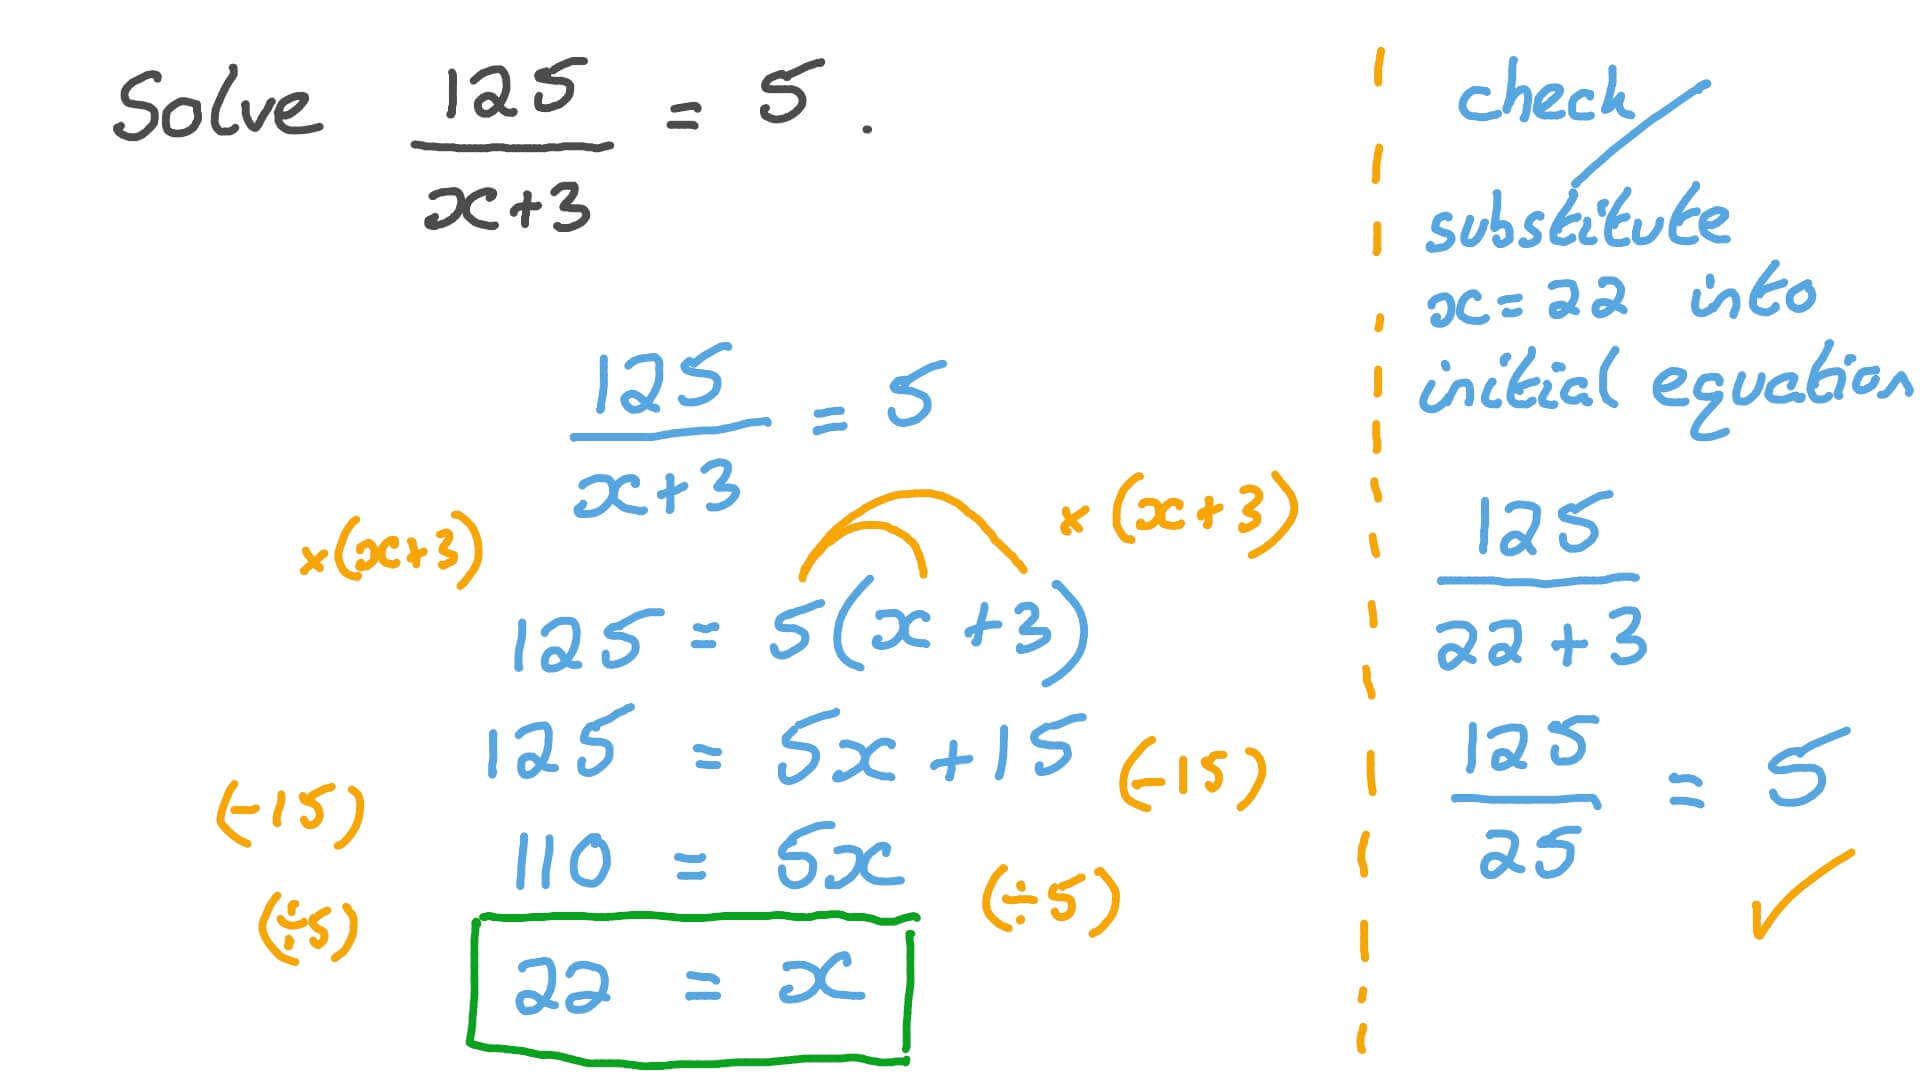 Solve 125/x+3 = 5.
125/x+3 = 5
×(x+3) ×(x+3)
125 = 5(x+3)
125 = 5x+15
(-15) (-15)
110 = 5x
(÷5) (÷5)
22 = x
check
substitute
x=22 into
initial equation
125/22+3
125/25 = 5 ✓